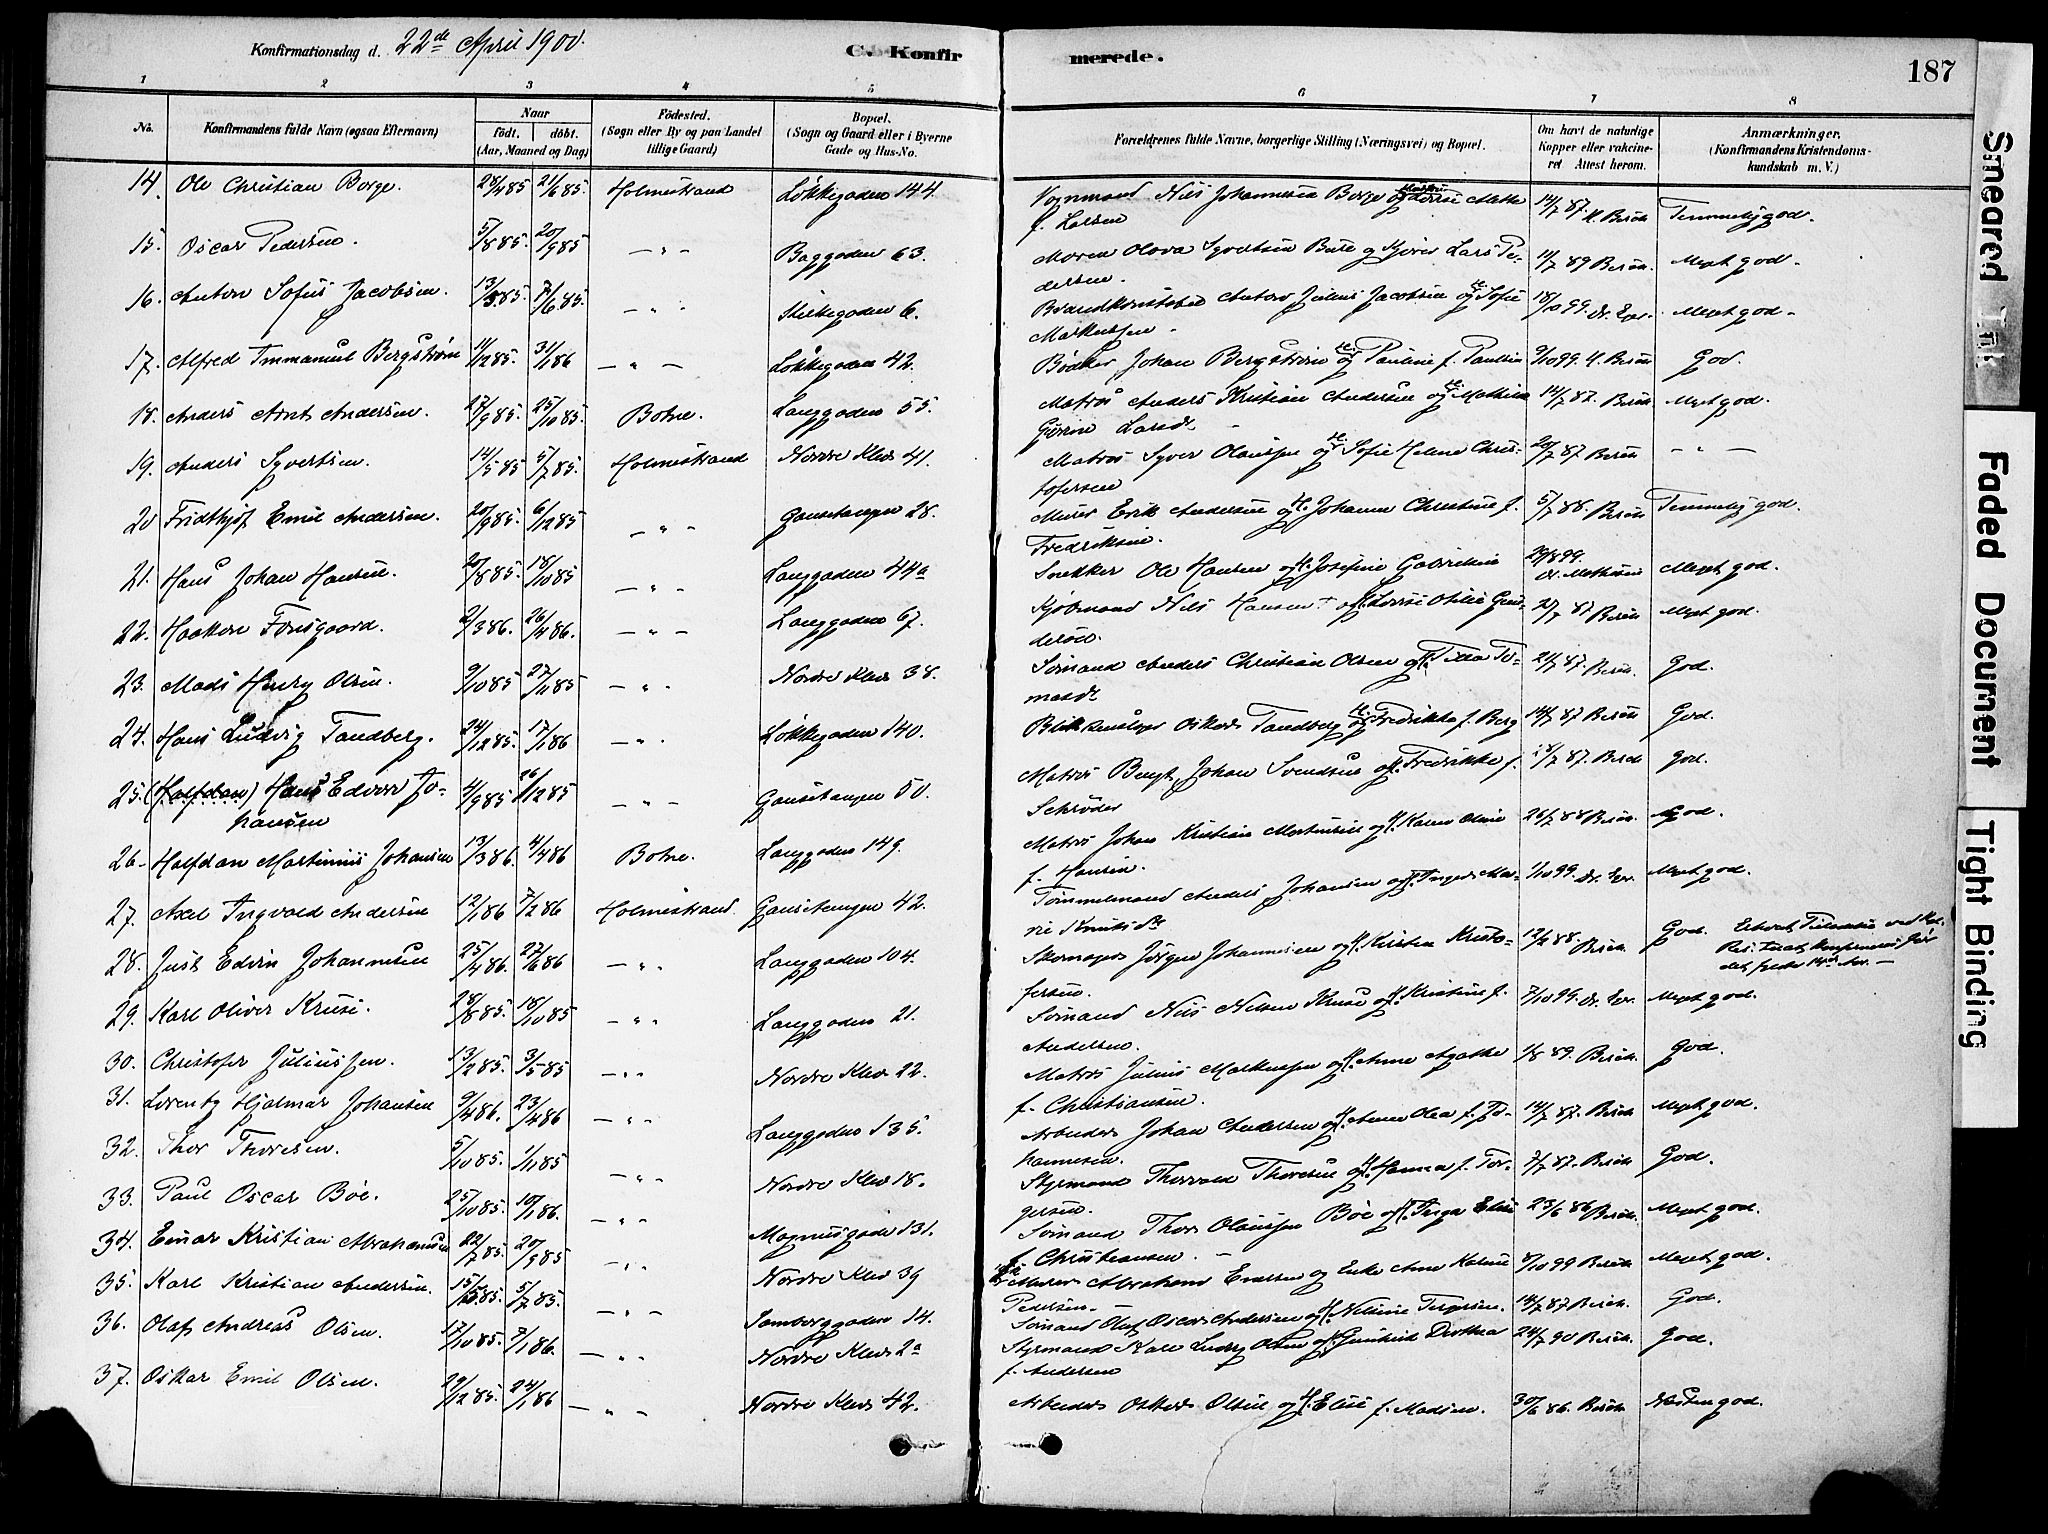 Konfirmationsdag d. 22de April 1900.
C. Konfirmerede.
187
1 2 3 4 5 6 7 8
No. Konfirmandens fulde Navn (ogsaa Efternavn) Naar født. døbt. (Aar, Maaned og Dag) Fødested. (Sogn eller By og paa Landet tillige Gaard) Bopæl. (Sogn og Gaard eller i Byerne Gade og Hus-No. Forældrenes fulde Navne, borgerlige Stilling (Næringsvei) og Bopæl. Om havt de naturlige Kopper eller vakcineret Attest herom. Anmærkninger. (Konfirmandens Kristendomskundskab m. V.)
14. Ole Christian Borge. 28/4 85 21/6 85. Holmestrand Løkkegaden 144. Vognmand Nils Johannesen Borge og Mathe f. Larsen 14/7 87. Temmelig god.
15. Oscar Pedersen. 5/8 85. 20/9 85 — " — Baggaden 63. Maren Olava Syvertsen og Lars Pedersen. 11/7 89 Meget god.
16. Anton Sofus Jacobsen. 13/3 85. 7/6 85. " Kirkegaden 6. Anton Julius Jacobsen og H. Sofie Markussen. 99. Meget god.
17. Alfred Immanuel Bergstrøm 11/12 85. 31/1 86 — " — Løkkegaden 42. Bødker Johan Bergstrøm og H. Pauline f. Paulsen 9/10 99. God.
18. Anders Arnt Andersen. 27/9 85. 25/10 85. Botne. Langgaden 55. Matros Anders Kristian Andersen og H. Mathea Larsdt. 14/7 87. Meget god.
19. Anders Syvertsen. 14/5 85 5/7 85. Holmestrand Nordre Klev 41. Matros Syver Olaussen og H. Sofie Helene Christofersen 20/7 87. — " —
20 Fridthjof Emil Andersen. 20/9 85. 6/12 85 — " " Gausetangen 28. Murer Erik Andersen og H. Johanne Christine f. Fredriksen. 5/7 88. Temmelig god.
21. Hans Johan Hansen. 20/8 85. 18/10 85 — " " Langgaden 44a Snekker Ole Hansen og H. Josefine Gabrielsen 29/8 99. Dr. Mathisen Meget god.
22. Haakon Fonsgaard. 2/3 86. 26/4 86. — " — Langgaden 67. Kjøbmand Nils Hansen † og H. Lovise Otilie Gundersen. 2/7 87 Meget god.
23. Mads Henry Olsen. 9/10 85 27/11 85 — " . Nordre Klev 38. Sømand Anders Christian Olsen og H. Tomasdt. 21/7 87. God.
24. Hans Ludvig Tandberg. 24/12 85. 17/1 86 — " . Løkkegaden 140. Oskar Tandberg og H. Fredrikke f. Berg 14/7 87 God.
25. (Halfdan) Hans Edvar Johansen 4/9 85 26/12 85 — " — Gausetangen 50. Matros Bengt Johan Svendsen og H. Fredrikke f. Schrøder 18/7 87. God.
26. Halfdan Martinius Johansen 13/3 86. 4/4 86 Botne. Langgaden 149. Matros Johan Kristian Mortensen og H. Karen Oline f. Hansen. 26/7 88 God.
27. Axel Ingvald Andersen 12/1 86 7/2 86 Holmestrand. Gausetangen 42. Tømmermand Anders Johansen og H. Inger Marie Knutsdt. 1/10 99. Meget god.
28. Just Edvin Johannesen 25/4 86. 27/6 86 — " . Langgaden 104. Skomager Jørgen Johannesen og H. Kirsten Kristofersen. 12/7 88. God.
29. Karl Oliver Kruse. 28/8 85. 18/10 85 — " . Langgaden 21. Sømand Nils Nilsen Kruse og H. Kristine f. Andersen. 7/10 99. Meget god.
30. Christofer Juliussen. 13/2 85. 3/5 85 — " . Nordre Klev 22. Matros Julius Markussen og H. Anne Agathe f. Christiansen. 1/8 89. God.
31. Lorentz Hjalmar Johansen 9/4 86. 23/4 86 — " . Langgaden 135. Arbeider Johan Andersen og H. Anne Olea f. Johannesen. 14/7 87. Meget god.
32. Thor Thoresen. 5/10 85. 1/11 85 — " . Nordre Klev 18. Styrmand Thorvald Thoresen og H. Hanna f. Torgersen. 7/7 87. God.
33. Paul Oscar Bøe. 25/10 85. 10/1 86. — " . Magnusgade 131. Sømand Thor Olaussen Bøe og H. Inga Elise f. Christiansen. 23/6 86 Meget god.
34. Einar Kristian Abrahamsen 22/7 85. 20/9 85 " . Nordre Klev 39 Murer Abraham Enersen og Enke Anne Kaline Pedersen. 8/10 99 Meget god.
35. Karl Kristian Andersen. 15/5 85. 5/7 85. — " " Langgaden 14. Sømand Oluf Oscar Andersen og H. Nilsine Torgersen. 14/7 87 God.
36. Olaf Andreas Olsen. 17/10 85. 7/1 86. — " . Nordre Klev 2a Styrmand Karl Ludvig Olsen og H. Gunhild Dorthea f. Andersen 24/7 90 God.
37. Oskar Emil Olsen. 29/12 85. 24/1 86 — " . Nordre Klev 42. Arbeider Oskar Olsen og H. Elise f. Madsen. 30/6 86. Næsten god.
Smeared Ink
Faded Document
Tight Binding